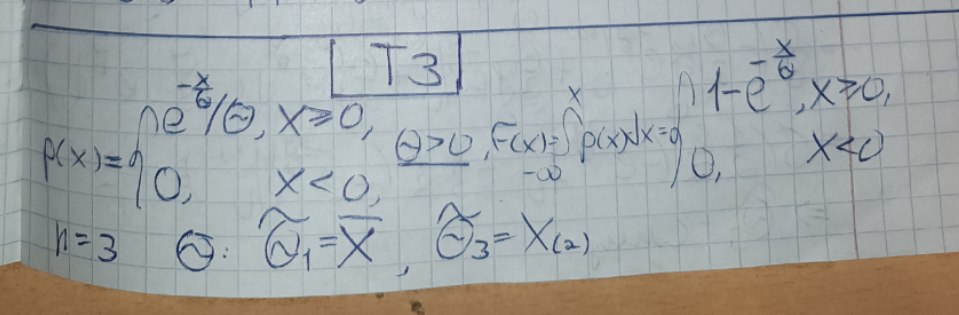 T3
p(x) = { e^{-x/θ}/θ, x ≥ 0, 0, x < 0, θ > 0, F(x) = ∫_{-∞}^{x} p(x)dx = { 1 - e^{-x/θ}, x ≥ 0, 0, x < 0
n = 3 θ: θ̃₁ = X̄, θ̃₃ = X₍₂₎